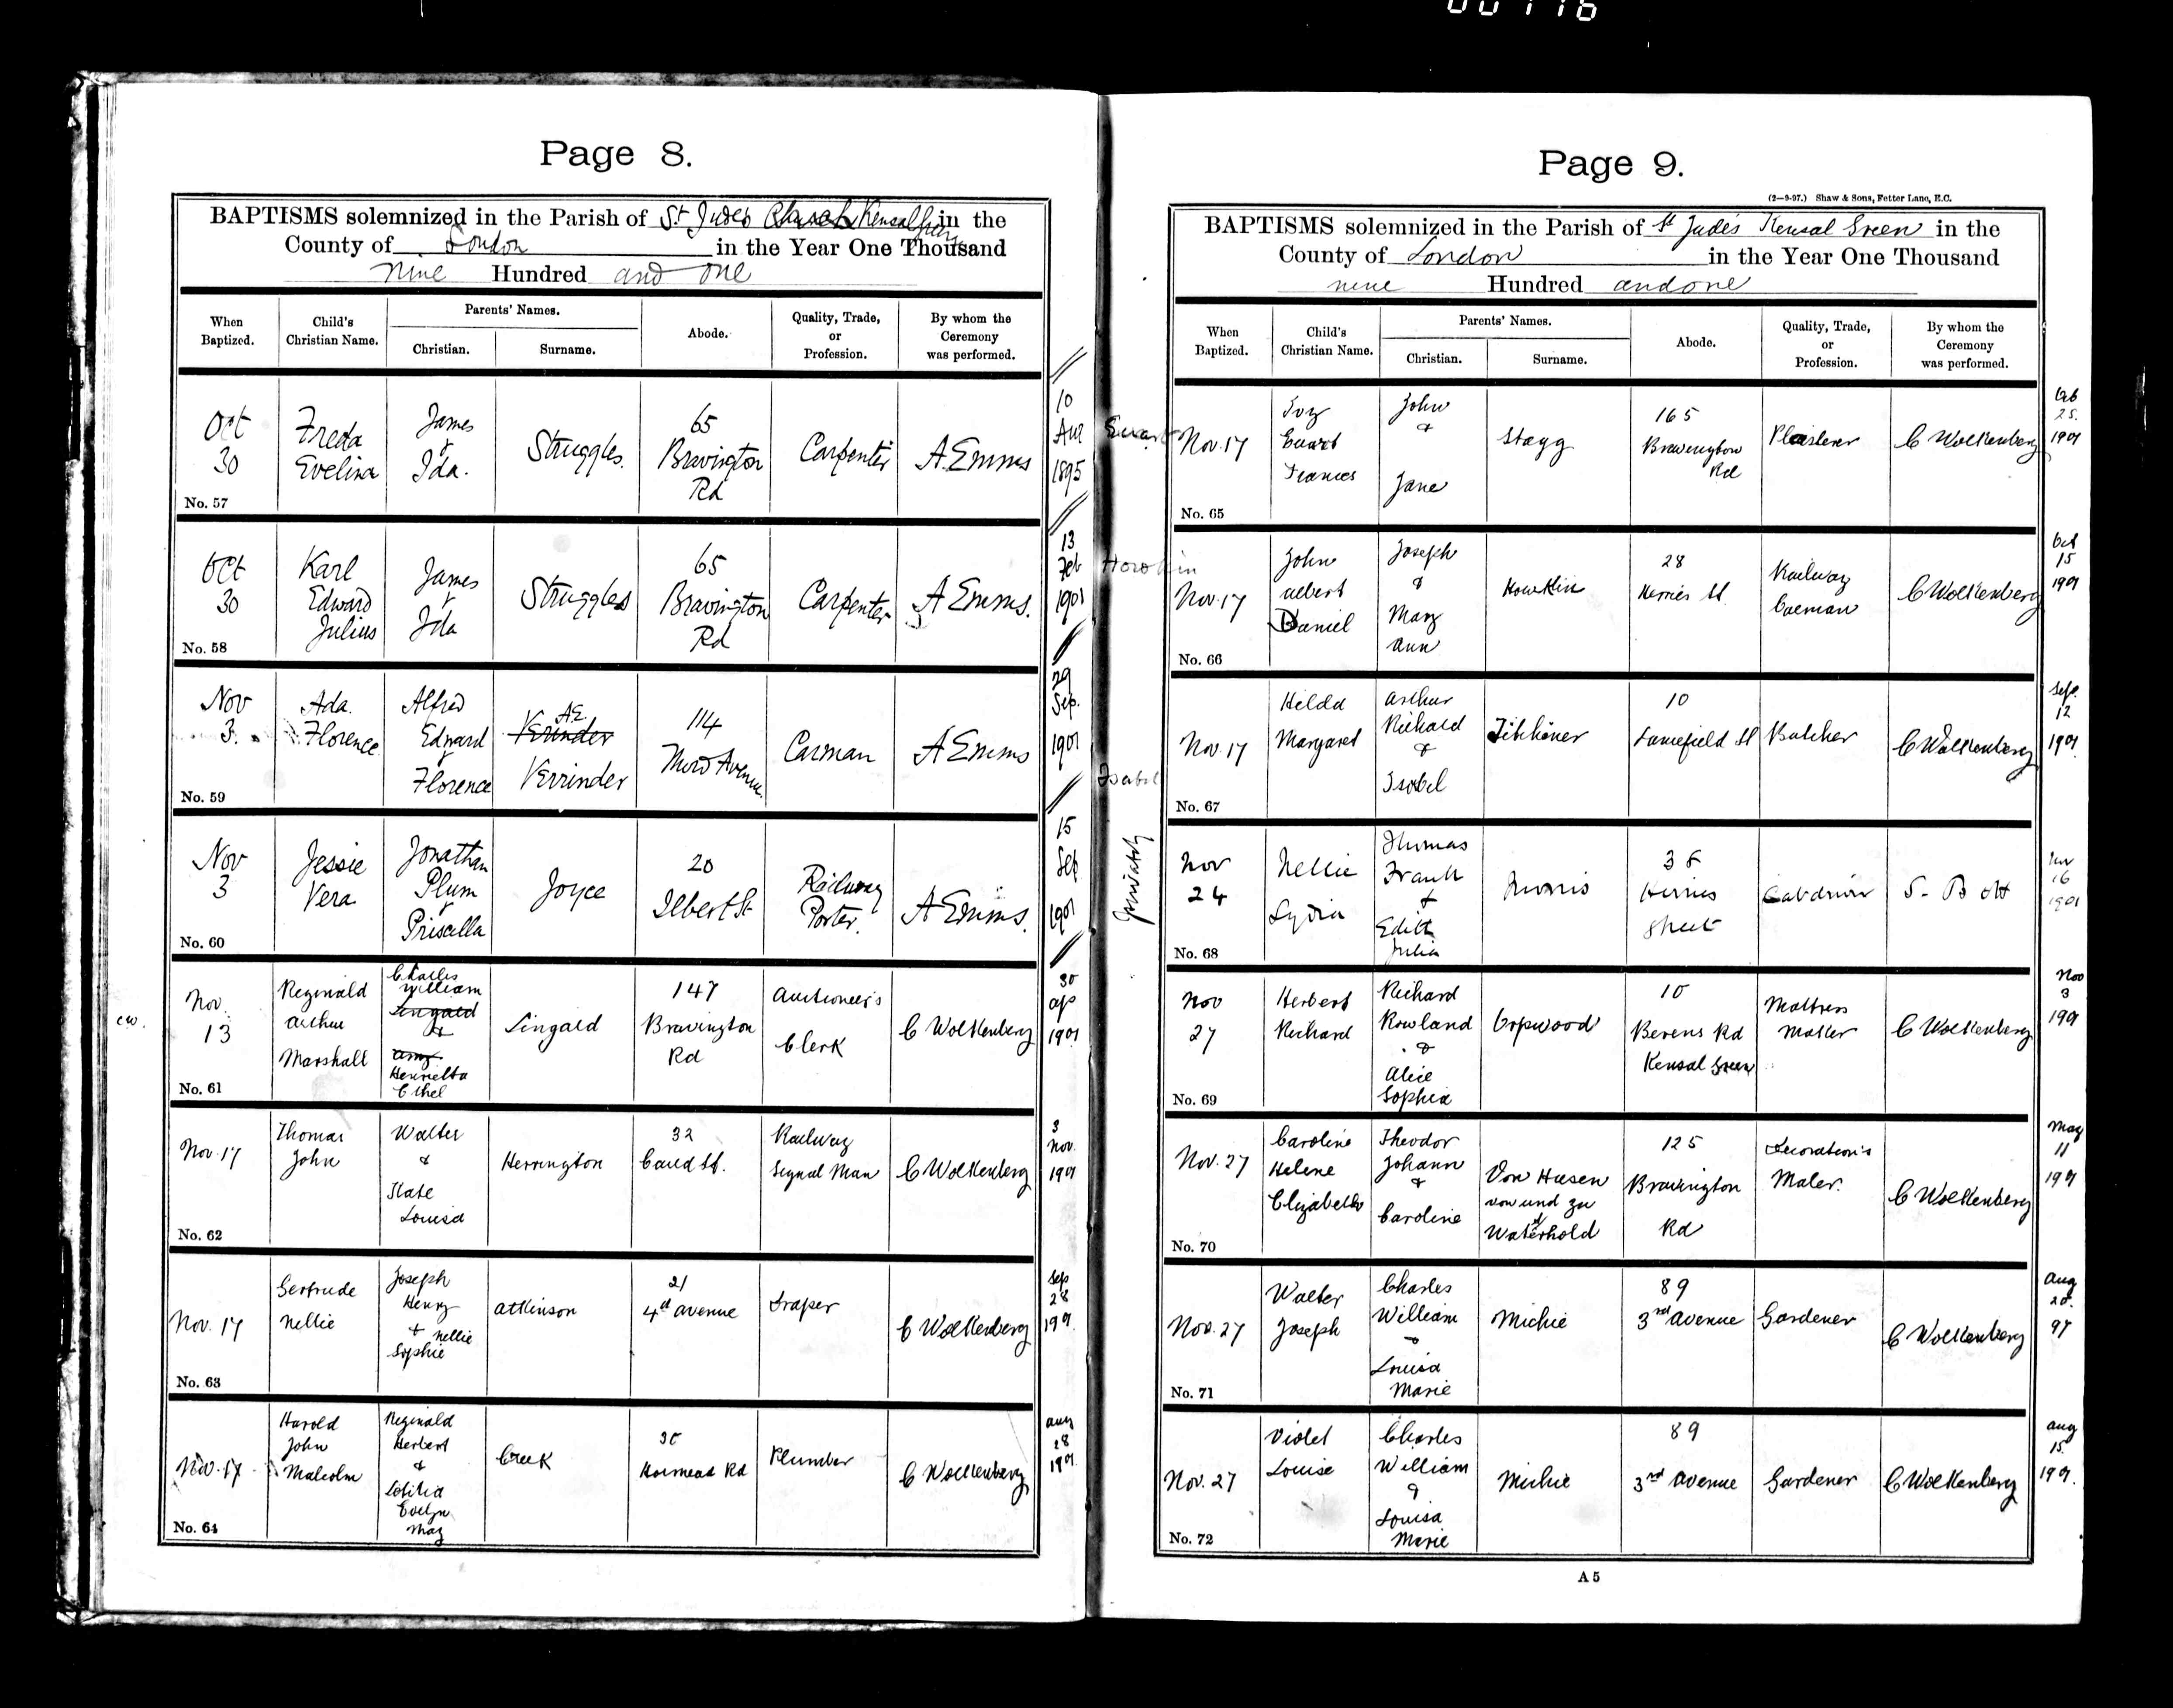 00776
Page 8.
BAPTISMS solemnized in the Parish of St Judes Church Kensal Green in the
County of London in the Year One Thousand
nine Hundred and one
When Baptized.
Child's Christian Name.
Parents' Names.
Christian.
Surname.
Abode.
Quality, Trade, or Profession.
By whom the Ceremony was performed.
Oct 30
No. 57
Freda Evelina
James & Ida.
Struggles.
65 Bravington Rd
Carpenter
A. Emms
10 Aur 1895
Oct 30
No. 58
Karl Edward Julius
James & Ida
Struggles
65 Bravington Rd
Carpenter
A Emms.
13 Feb 1901
Nov 3.
No. 59
Ada. Florence
Alfred Edward & Florence
Verinder AE. Verrinder
114 Third Avenue.
Carman
A Emms
29 Sep. 1901
Nov 3
No. 60
Jessie Vera
Jonathan Plum & Priscilla
Joyce
20 Ilbert St
Railway Porter.
A Emms.
15 Sep 1901
cw.
Nov. 13
No. 61
Reginald Arthur Marshall
Charles William Lingard & Amy Henrietta Ethel
Lingard
147 Bravington Rd
Auctioneer's Clerk
C Wolkenberg
30 ap 1901
Nov. 17
No. 62
Thomas John
Walter & Kate Louisa
Herrington
32 Caird St.
Railway Signal Man
C Wolkenberg
3 Nov. 1901
Nov. 17
No. 63
Gertrude Nellie
Joseph Henry & Nellie Sophie
Atkinson
21 4th Avenue
Draper
C Wolkenberg
Sep 28 1901
Nov. 17
No. 64
Harold John Malcolm
Reginald Herbert & Letitia Evelyn May
Creek
Hormead Rd
Plumber
C Wolkenberg
aug 28 1901
Page 9.
(2—9-97.) Shaw & Sons, Fetter Lane, E.C.
BAPTISMS solemnized in the Parish of St Jude's Kensal Green in the
County of London in the Year One Thousand
nine Hundred and one
When Baptized.
Child's Christian Name.
Parents' Names.
Christian.
Surname.
Abode.
Quality, Trade, or Profession.
By whom the Ceremony was performed.
Ewart
Nov. 17
No. 65
Ivy Ewart Frances
John & Jane
Stagg
165 Bravington Rd
Plasterer
C Wolkenberg
Oct 25. 1901
Howkin
Nov. 17
No. 66
John Albert Daniel
Joseph & Mary Ann
Howkin
28 Herries St
Railway Coeman
C Wolkenberg
Oct 15 1901
Isabel
Nov. 17
No. 67
Hilda Margaret
Arthur Richard & Isobel
Titchiner
10 Lancefield St
Butcher
C Wolkenberg
Sep. 12 1901
privately
Nov 24
No. 68
Nellie Lydia
Thomas Frank & Edith Julia
Herries Street
Cabdriver
Nov 16 1901
Nov 27
No. 69
Herbert Richard
Richard Rowland & Alice Sophia
Orpwood
10 Berens Rd Kensal Green
Mattress Maker
C Wolkenberg
Nov 3 1901
Nov. 27
No. 70
Caroline Helene Elizabeth
Theodor Johann & Caroline
Von Husen von und zu Waterhold
125 Bravington Rd
Decoration's Maler.
C Wolkenberg
May 11 1901
Nov. 27
No. 71
Walter Joseph
Charles William & Louisa Marie
Michie
89 3rd Avenue
Gardener
C Wolkenberg
Aug 20. 97
Nov. 27
No. 72
Violet Louise
Charles William & Louisa Marie
Michie
89 3rd Avenue
Gardener
C Wolkenberg
aug 15. 1901.
A 5